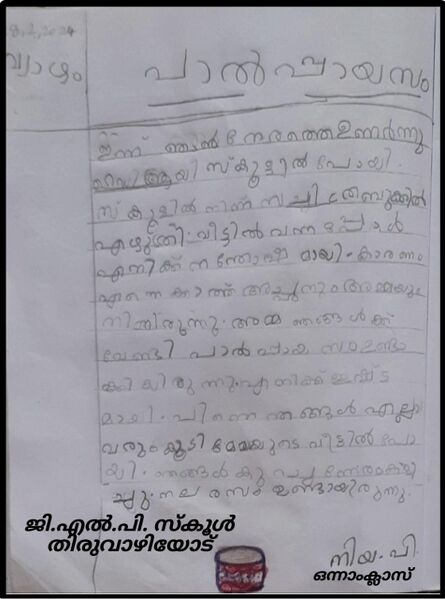 8.2.2024
വ്യാഴം
പാൽപ്പായസം
ഇന്ന് ഞാൻ നേരത്തെ ഉണർന്നു
റെഡിആയി സ്കൂളിൽ പോയി.
സ്കൂളിൽ നിന്ന്
എഴുതി. വീട്ടിൽ വന്നപ്പോൾ
എനിക്ക് സന്തോഷമായി. കാരണം
എന്നെ കാത്ത് അച്ഛനും അമ്മയും
നിന്നിരുന്നു. അമ്മ ഞങ്ങൾക്ക്
വേണ്ടി പാൽപ്പായസം ഉണ്ടാ
ക്കിയിരുന്നു. എനിക്ക് ഇഷ്ട
മായി. പിന്നെ ഞങ്ങൾ എല്ലാ
വരും കൂടി മേമയുടെ വീട്ടിൽ പോ
യി. ഞങ്ങൾ കുറച്ചു നേരം കളി
ച്ചു. നല്ല രസം ഉണ്ടായിരുന്നു.
ജി.എൽ.പി. സ്കൂൾ
തിരുവാഴിയോട്
നിയ. പി.
ഒന്നാംക്ലാസ്